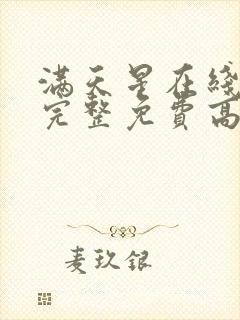 满天星在线
完整免费高
麦玖银